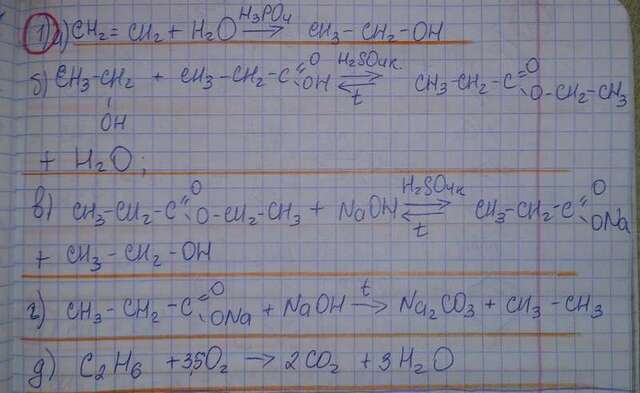 1) а) CH₂ = CH₂ + H₂O —H₃PO₄→ CH₃ – CH₂ – OH
б) CH₃ – CH₂(OH) + CH₃ – CH₂ – C(=O)OH ⇄ (H₂SO₄ к., t) CH₃ – CH₂ – C(=O)O – CH₂ – CH₃
+ H₂O;
в) CH₃ – CH₂ – C(=O)O – CH₂ – CH₃ + NaOH ⇄ (H₂SO₄ к, t) CH₃ – CH₂ – C(=O)ONa
+ CH₃ – CH₂ – OH
г) CH₃ – CH₂ – C(=O)ONa + NaOH —t→ Na₂CO₃ + CH₃ – CH₃
д) C₂H₆ + 3,5O₂ → 2CO₂ + 3H₂O